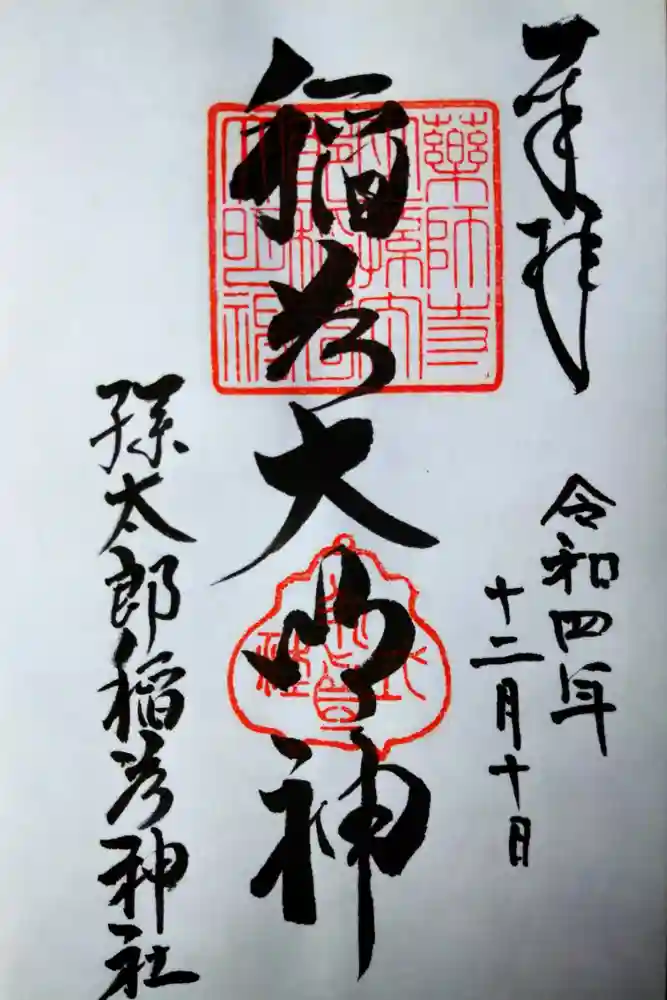 奉拝
令和四年
十二月十日
藥師寺
稲荷大明神
孫太郎稲荷神社